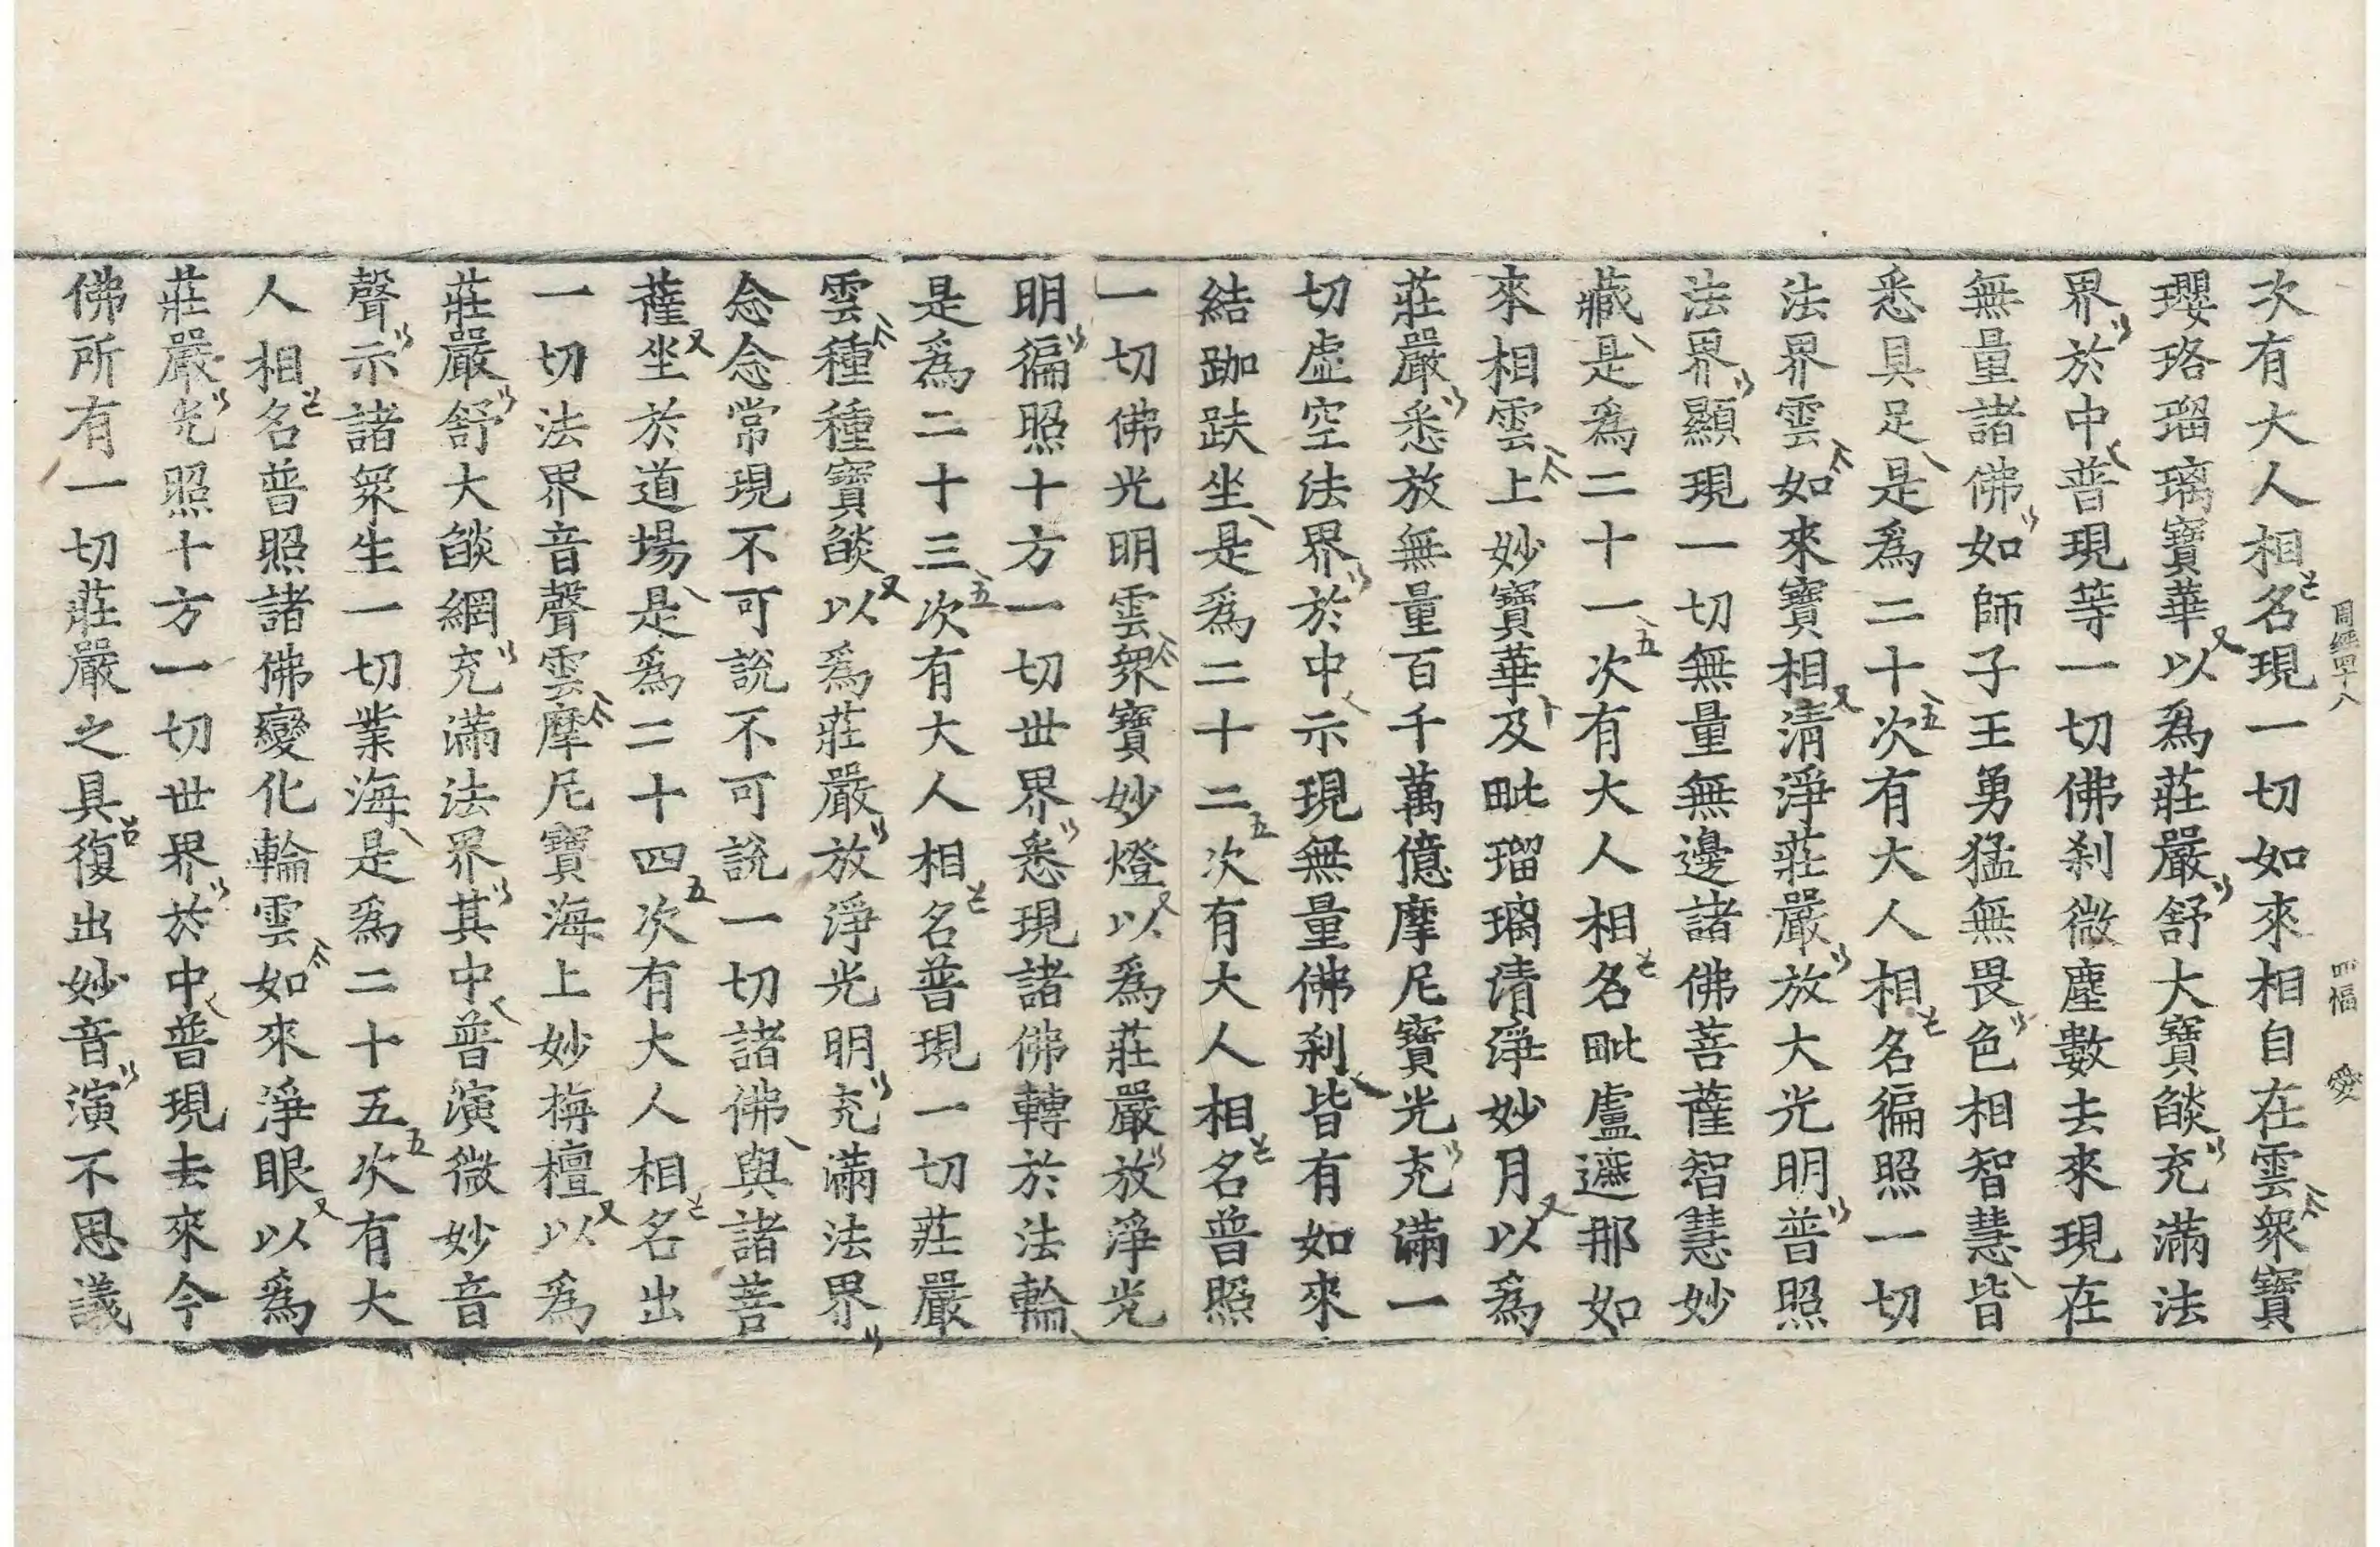 周經四十八 四福 愛
次有大人相名現一切如來相自在雲衆寶
瓔珞瑠璃寶華以爲莊嚴舒大寶㷔充滿法
界於中普現等一切佛刹微塵數去來現在
無量諸佛如師子王勇猛無畏色相智慧皆
悉具足是爲二十次有大人相名徧照一切
法界雲如來寶相清淨莊嚴放大光明普照
法界顯現一切無量無邊諸佛菩薩智慧妙
藏是爲二十一次有大人相名毗盧遮那如
來相雲上妙寶華及毗瑠璃清淨妙月以爲
莊嚴悉放無量百千萬億摩尼寶光充滿一
切虛空法界於中示現無量佛刹皆有如來
結跏趺坐是爲二十二次有大人相名普照
一切佛光明雲衆寶妙燈以爲莊嚴放淨光
明徧照十方一切世界悉現諸佛轉於法輪
是爲二十三次有大人相名普現一切莊嚴
雲種種寶㷔以爲莊嚴放淨光明充滿法界
念念常現不可說不可說一切諸佛與諸菩
薩坐於道場是爲二十四次有大人相名出
一切法界音聲雲摩尼寶海上妙栴檀以爲
莊嚴舒大㷔網充滿法界其中普演微妙音
聲示諸衆生一切業海是爲二十五次有大
人相名普照諸佛變化輪雲如來淨眼以爲
莊嚴光照十方一切世界於中普現去來今
佛所有一切莊嚴之具復出妙音演不思議